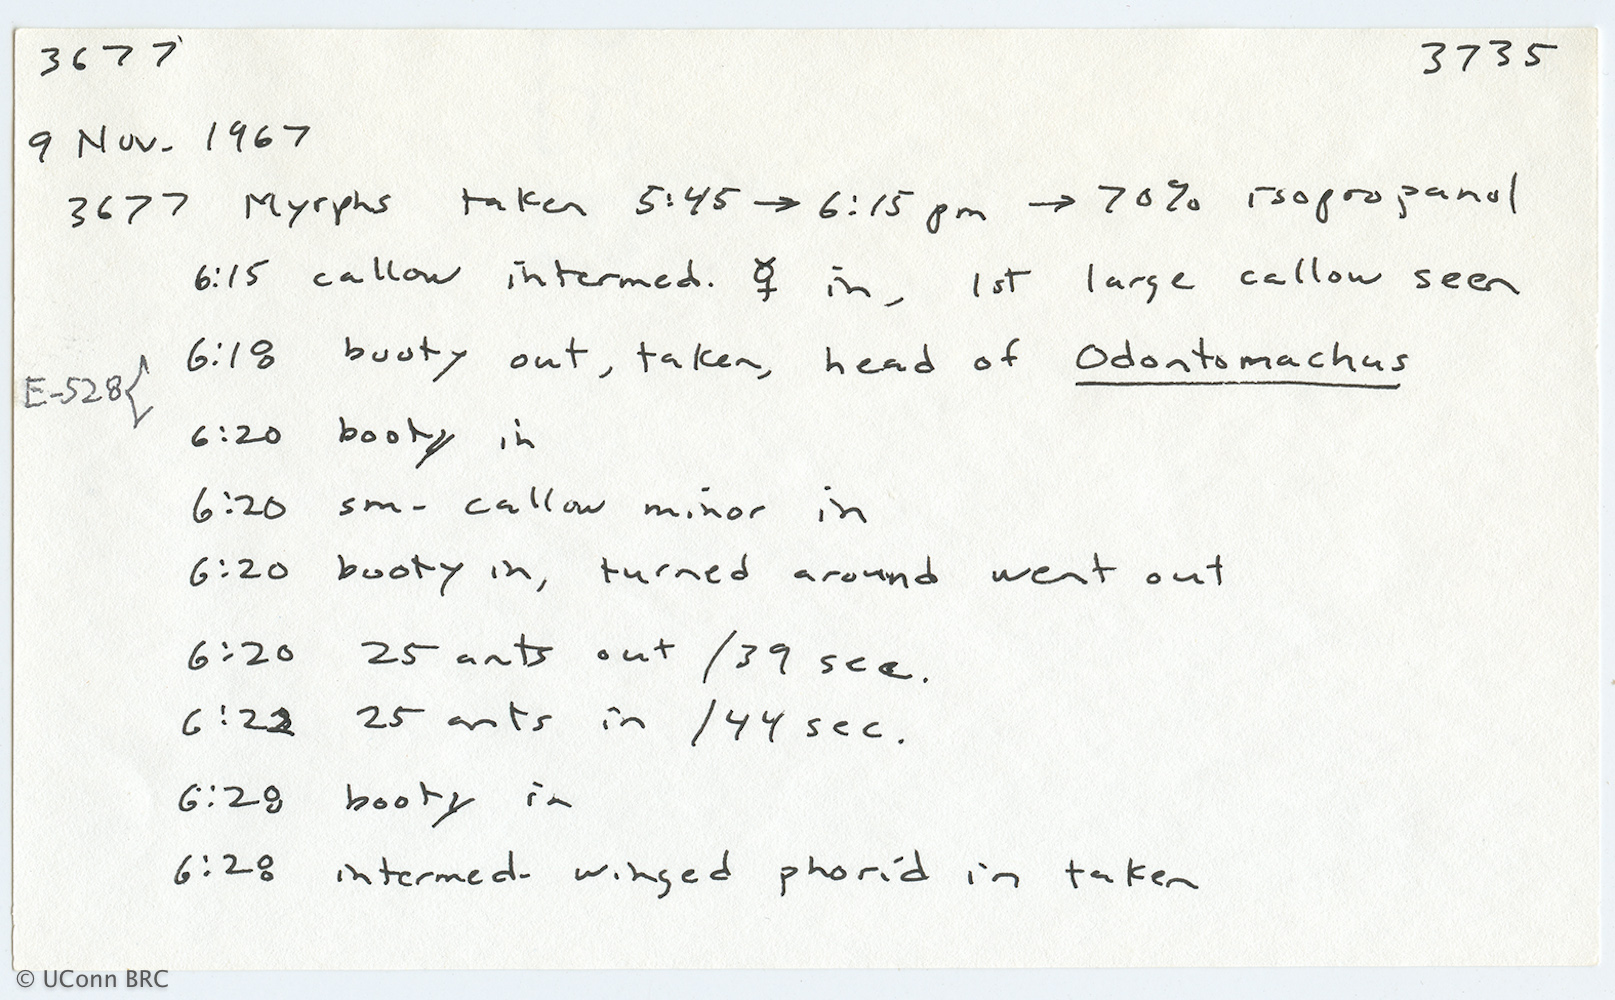 3677 3735
9 Nov. 1967
3677 Myrphs taken 5:45 → 6:15 pm → 70% isopropanol
6:15 callow intermed. ☿ in, 1st large callow seen
6:18 booty out, taken, head of Odontomachus
E-528{
6:20 booty in
6:20 sm. callow minor in
6:20 booty in, turned around went out
6:20 25 ants out /39 sec.
6:22 25 ants in /44 sec.
6:28 booty in
6:28 intermed. winged phorid in taken
© UConn BRC